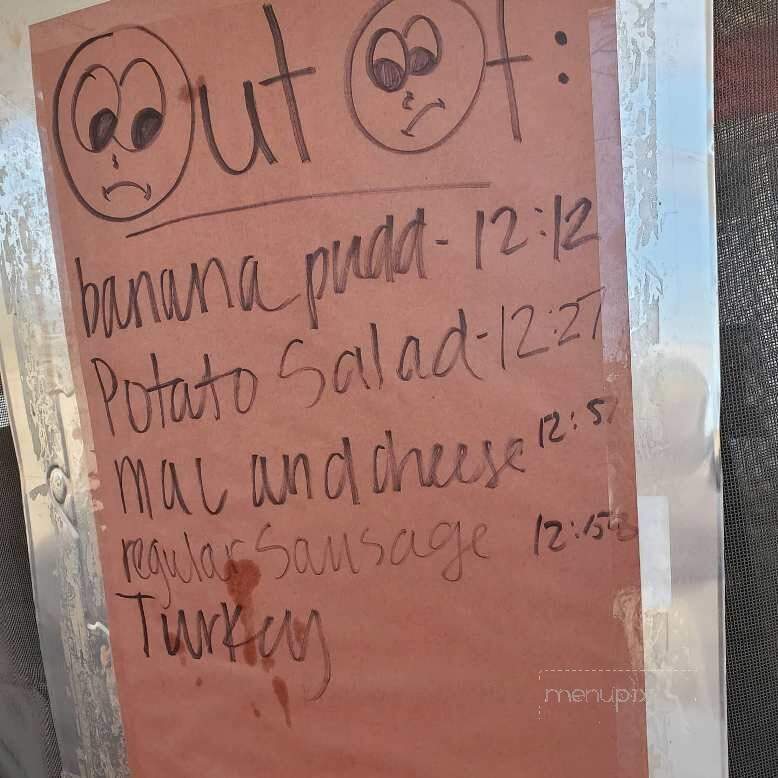 Out Of:
banana pudd - 12:12
Potato Salad - 12:27
mac and cheese 12:57
regular Sausage
Turkey
menupix